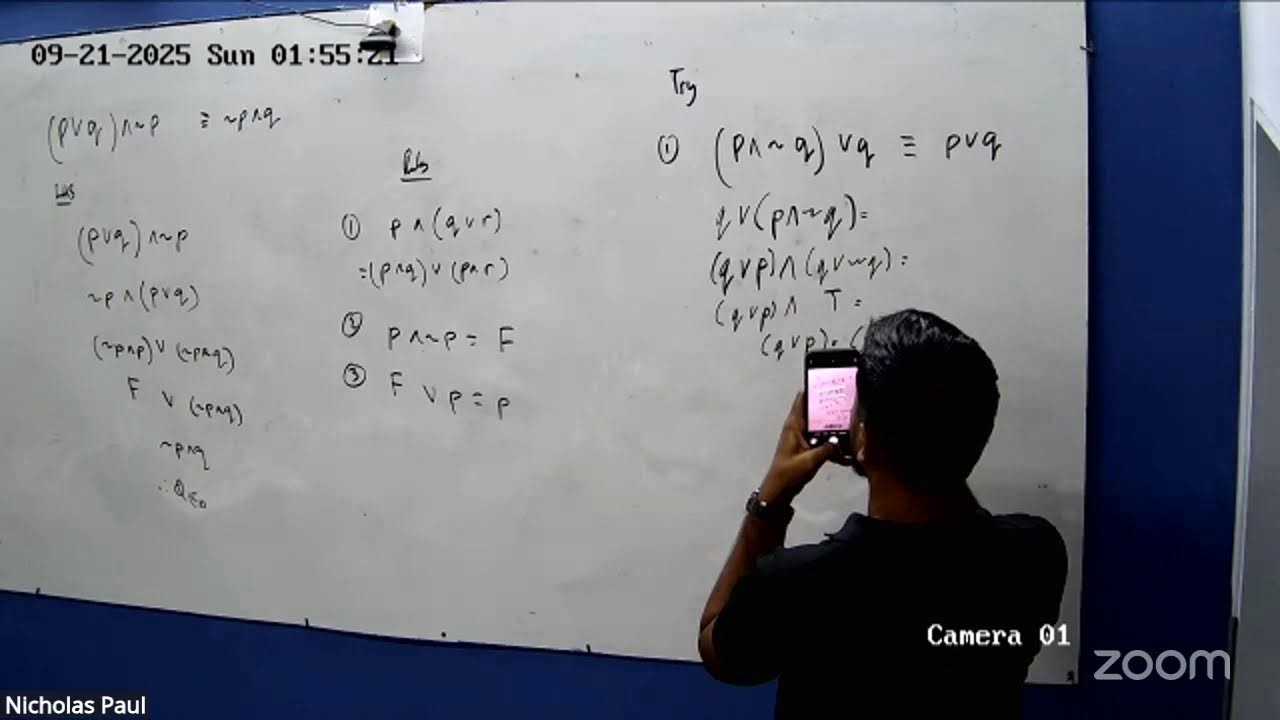 09-21-2025 Sun 01:55:21
(p∨q)∧~p ≡ ~p∧q
LHS
(p∨q)∧~p
~p∧(p∨q)
(~p∧p)∨(~p∧q)
F ∨ (~p∧q)
~p∧q
∴QED
Rules
① p∧(q∨r)
=(p∧q)∨(p∧r)
② p∧~p = F
③ F ∨ p = p
Try
① (p∧~q)∨q ≡ p∨q
q∨(p∧~q)=
(q∨p)∧(q∨~q)=
(q∨p)∧ T =
(q∨p)=(
Camera 01
zoom
Nicholas Paul